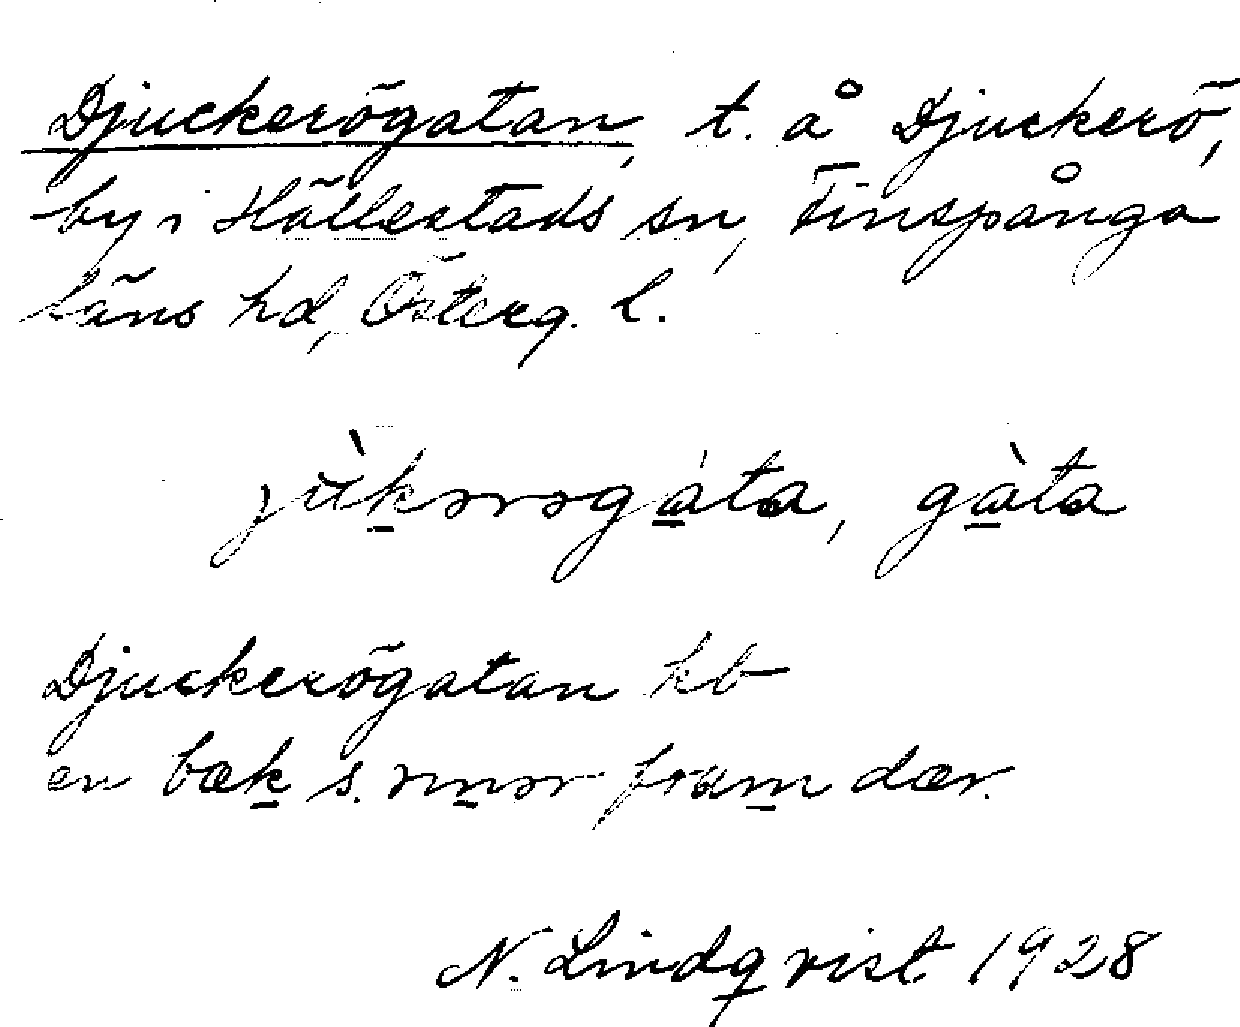 Djuckerögatan, t. å Djuckerö,
by i Hällestads sn, Finspånga
läns hd, Österg. l.
jùkərəgáta, gàta
Djuckerögatan kb
en bæk s. rinər fram dær.
N. Lindqvist 1928